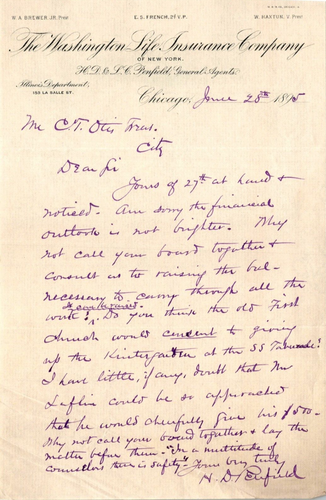 W. A. BREWER, JR. Prest.
E. S. FRENCH, 2d V. P.
W. HAXTUN, V. Prest.
The Washington Life Insurance Company
OF NEW YORK.
H.D. & L.C. Penfield, General Agents.
Illinois Department,
153 LA SALLE ST.
Chicago, June 28th 1895
Mr C.T. Otis Treas.
City
Dear Sir
Yours of 27th at hand &
noticed. Am sorry the financial
outlook is not brighter. Why
not call your board together &
consult as to raising the bal-
necessary to carry through all the
work
Do you think the old First
church would consent to giving
up the Kintergarten at the SS
I have little, if any, doubt that Mr
Laflin could be so approached
that he would cheerfully give his $500-
Why not call your board together & lay the
matter before them- "In a multitude of
counsellors there is safety"- Yours very truly
H. D. Penfield